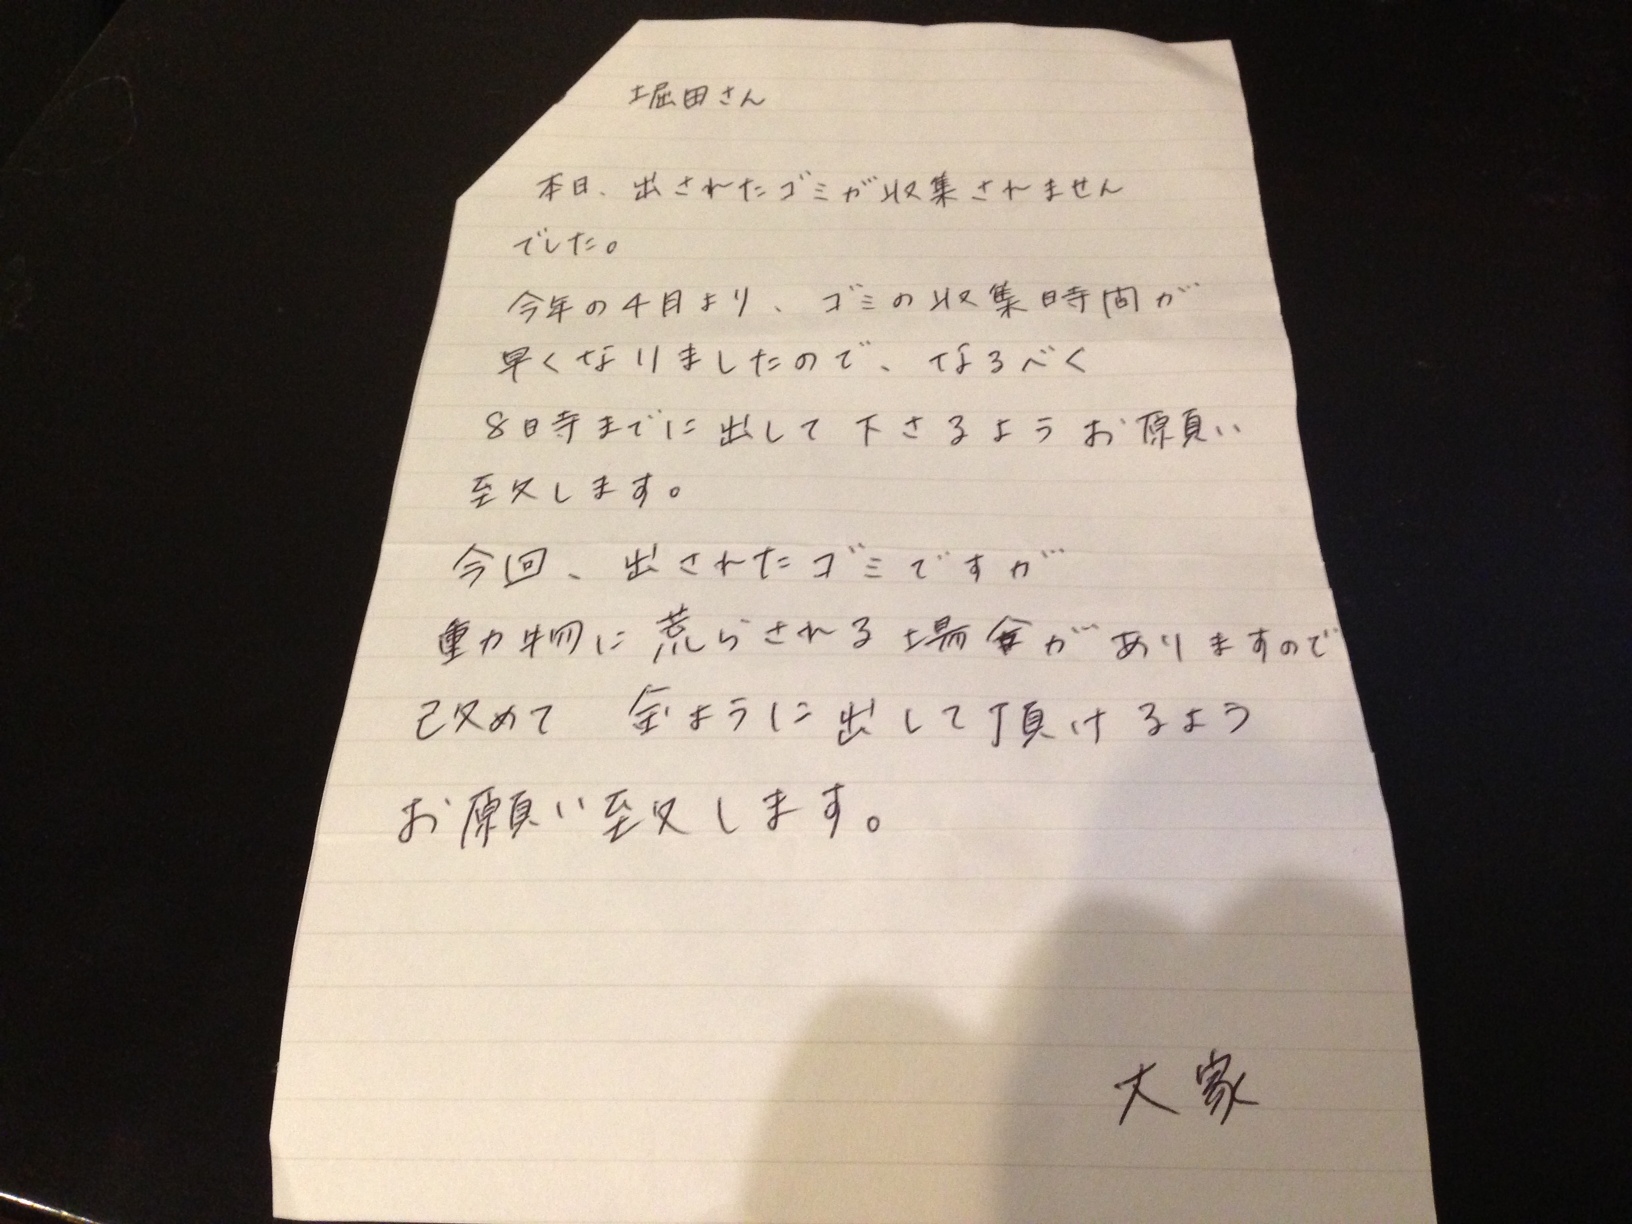 堀田さん
本日、出されたゴミが収集されません
でした。
今年の4月より、ゴミの収集時間が
早くなりましたので、なるべく
8時までに出して下さるようお願い
至久します。
今回、出されたゴミですが
動物に荒らされる場合がありますので
改めて 金ように出して頂けるよう
お願い至久します。
大家